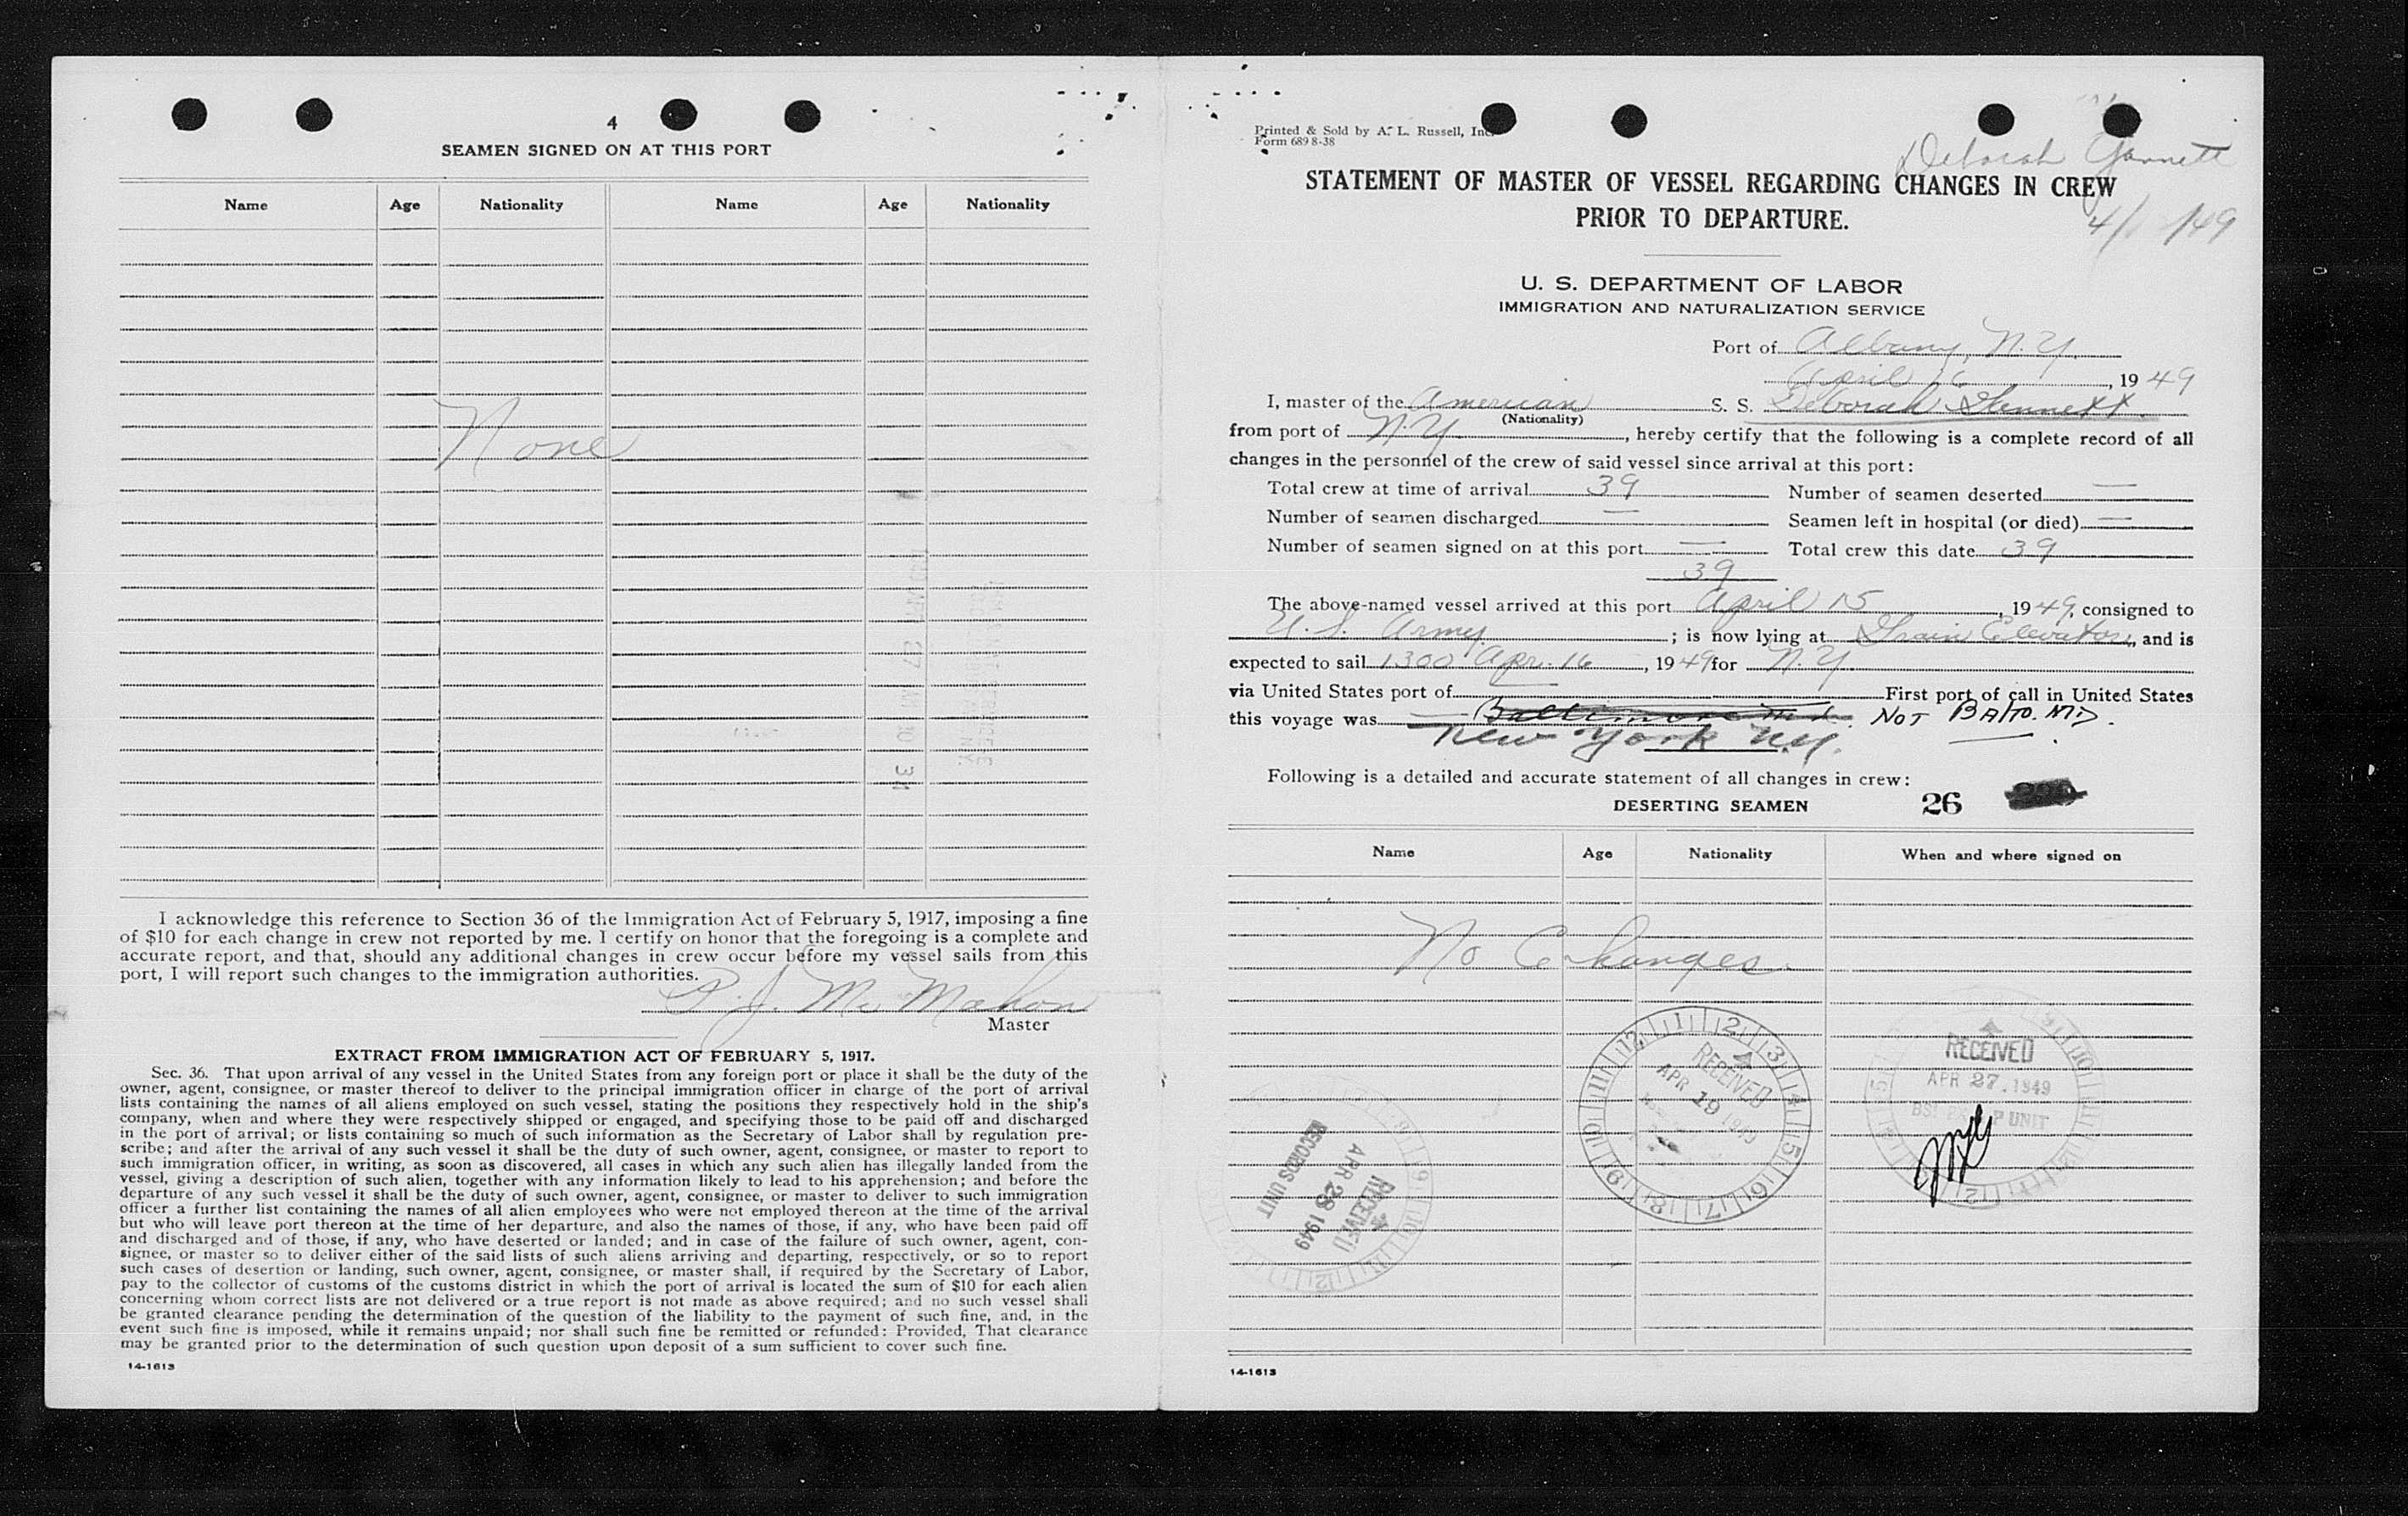 4
SEAMEN SIGNED ON AT THIS PORT
Name Age Nationality Name Age Nationality
None
I acknowledge this reference to Section 36 of the Immigration Act of February 5, 1917, imposing a fine
of $10 for each change in crew not reported by me. I certify on honor that the foregoing is a complete and
accurate report, and that, should any additional changes in crew occur before my vessel sails from this
port, I will report such changes to the immigration authorities.
P. J. Mc Mahon
Master
EXTRACT FROM IMMIGRATION ACT OF FEBRUARY 5, 1917.
Sec. 36. That upon arrival of any vessel in the United States from any foreign port or place it shall be the duty of the
owner, agent, consignee, or master thereof to deliver to the principal immigration officer in charge of the port of arrival
lists containing the names of all aliens employed on such vessel, stating the positions they respectively hold in the ship's
company, when and where they were respectively shipped or engaged, and specifying those to be paid off and discharged
in the port of arrival; or lists containing so much of such information as the Secretary of Labor shall by regulation pre-
scribe; and after the arrival of any such vessel it shall be the duty of such owner, agent, consignee, or master to report to
such immigration officer, in writing, as soon as discovered, all cases in which any such alien has illegally landed from the
vessel, giving a description of such alien, together with any information likely to lead to his apprehension; and before the
departure of any such vessel it shall be the duty of such owner, agent, consignee, or master to deliver to such immigration
officer a further list containing the names of all alien employees who were not employed thereon at the time of the arrival
but who will leave port thereon at the time of her departure, and also the names of those, if any, who have been paid off
and discharged and of those, if any, who have deserted or landed; and in case of the failure of such owner, agent, con-
signee, or master so to deliver either of the said lists of such aliens arriving and departing, respectively, or so to report
such cases of desertion or landing, such owner, agent, consignee, or master shall, if required by the Secretary of Labor,
pay to the collector of customs of the customs district in which the port of arrival is located the sum of $10 for each alien
concerning whom correct lists are not delivered or a true report is not made as above required; and no such vessel shall
be granted clearance pending the determination of the question of the liability to the payment of such fine, and, in the
event such fine is imposed, while it remains unpaid; nor shall such fine be remitted or refunded: Provided, That clearance
may be granted prior to the determination of such question upon deposit of a sum sufficient to cover such fine.
14-1613
Printed & Sold by A. L. Russell, Inc.
Form 689 8-38
Deborah Gannett
4/ /49
STATEMENT OF MASTER OF VESSEL REGARDING CHANGES IN CREW
PRIOR TO DEPARTURE.
U. S. DEPARTMENT OF LABOR
IMMIGRATION AND NATURALIZATION SERVICE
Port of Albany, N.Y.
April 16, 1949
I, master of the American S. S. Deborah Gannett.
(Nationality)
from port of N.Y., hereby certify that the following is a complete record of all
changes in the personnel of the crew of said vessel since arrival at this port:
Total crew at time of arrival 39 Number of seamen deserted —
Number of seamen discharged — Seamen left in hospital (or died) —
Number of seamen signed on at this port — Total crew this date 39
39
The above-named vessel arrived at this port April 15, 1949, consigned to
U. S. Army; is now lying at Grain Elevator, and is
expected to sail 1300 Apr. 16, 1949 for N.Y.
via United States port of First port of call in United States
this voyage was Baltimore Md. NOT BALTO. MD.
New York N.Y.
Following is a detailed and accurate statement of all changes in crew:
DESERTING SEAMEN 26
Name Age Nationality When and where signed on
No Changes
RECEIVED
APR 19 1949
RECEIVED
APR 27. 1949
RECEIVED
APR 28 1949
RECORDS UNIT
14-1613